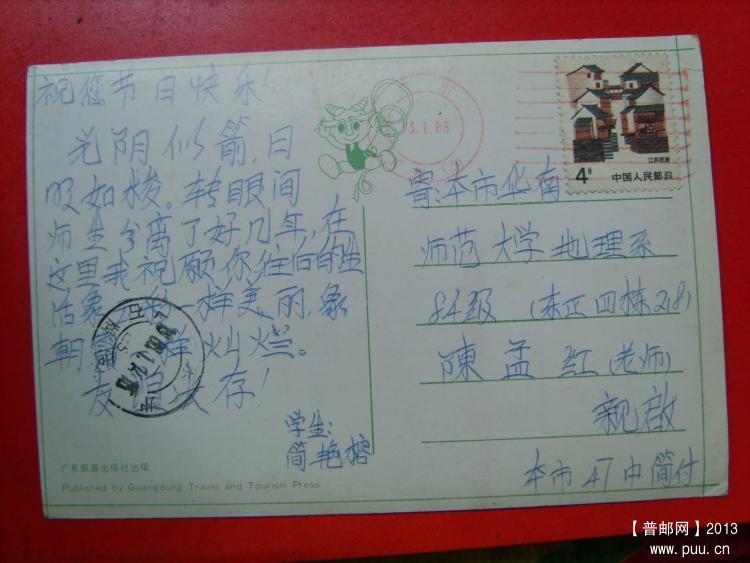 祝您节日快乐!
光阴似箭,日
月如梭。转眼间
师生分离了好几年,在
这里我祝愿你往后的生
活象 一样美丽,象
朝 一样灿烂。
友谊长存!
学生:
简艳榕
广东旅游出版社出版
Published by Guangdong Travel and Tourism Press
3.1.88
江苏民居
4分 中国人民邮政
寄:本市华南
师范大学地理系
84级(东正四栋218)
陳孟红(老师)
親啟
本市47中简付
【普邮网】2013
www.puu.cn